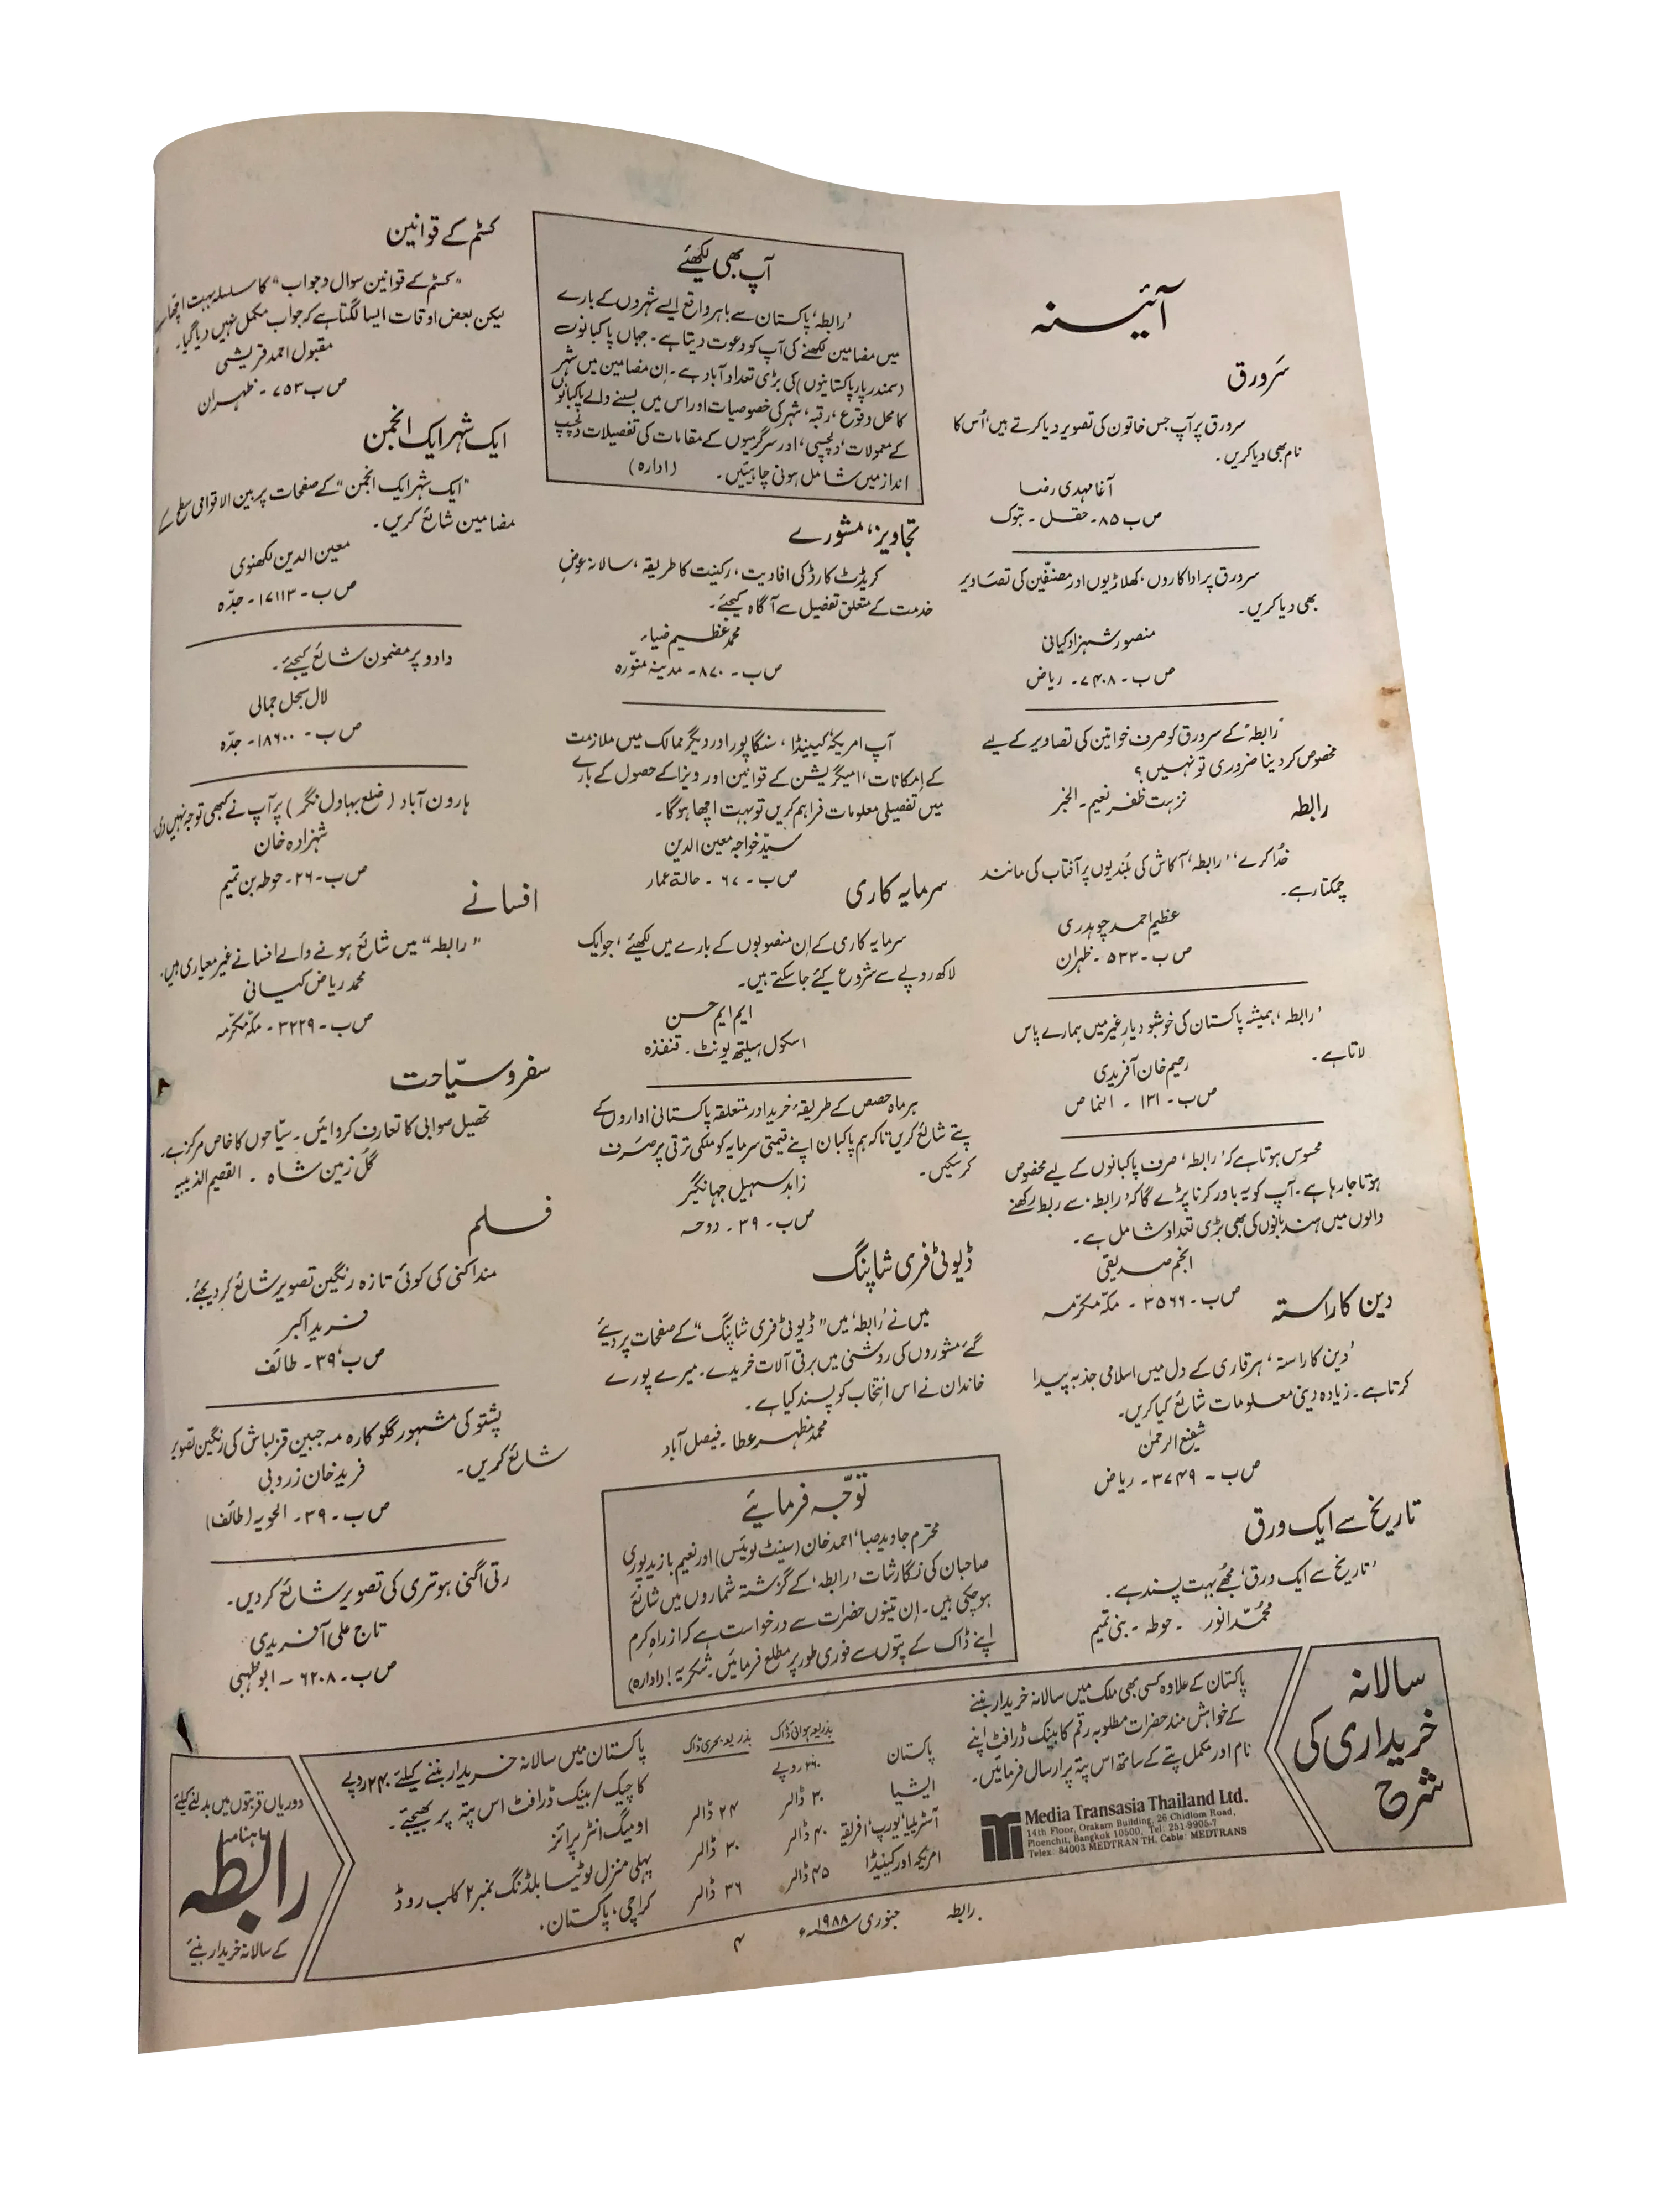 آئینہ
سَرورق
سرورق پر آپ جس خاتون کی تصویر دیا کرتے ہیں، اُس کا
نام بھی دیا کریں۔
آغا مہدی رضا
ص ب ۸۵۔ حقل ۔ تبوک
سرورق پر اداکاروں، کھلاڑیوں اور مصنّفین کی تصَاویر
بھی دیا کریں۔
منصور شہزاد کیانی
ص ب ۔ ۷۴۰۸۔ ریاض
’رابطہ‘ کے سرورق کو صرف خواتین کی تصاویر کے لیے
مخصوص کر دینا ضروری تو نہیں؟
نزہت ظفر نعیم ۔ الخبر
رابطہ
خُدا کرے، ’رابطہ‘ آکاش کی بُلندیوں پر آفتاب کی مانند
چمکتا رہے۔
عظیم احمد چوہدری
ص ب ۔ ۵۳۳ ۔ ظہران
’رابطہ‘ ہمیشہ پاکستان کی خوشبو دیارِ غیر میں ہمارے پاس
لاتا ہے۔
رحیم خان آفریدی
ص ب ۔ ۱۳۱ ۔ النماص
محسوس ہوتا ہے کہ ’رابطہ‘ صرف پاکبانوں کے لیے مخصوص
ہوتا جا رہا ہے۔ آپ کو یہ باور کرنا پڑے گا کہ ’رابطہ‘ سے ربط رکھنے
والوں میں ہند بانوں کی بھی بڑی تعداد شامل ہے۔
انجم صدیقی
ص ب ۔ ۳۵۶۶ ۔ مکّہ مکرّمہ
دین کا راستہ
’دین کا راستہ‘ ہر قاری کے دل میں اسلامی جذبہ پیدا
کرتا ہے۔ زیادہ دینی معلومات شائع کیا کریں۔
شفیع الرحمٰن
ص ب ۔ ۳۷۴۹ ۔ ریاض
تاریخ سے ایک ورق
’تاریخ سے ایک ورق‘ مجھے بہت پسند ہے۔
محمّد انور ۔ حوطہ ۔ بنی تمیم
آپ بھی لکھیئے
’رابطہ‘ پاکستان سے باہر واقع ایسے شہروں کے بارے
میں مضامین لکھنے کی آپ کو دعوت دیتا ہے۔ جہاں پاکبانوں
(سمندر پار پاکستانیوں) کی بڑی تعداد آباد ہے۔ اِن مضامین میں شہر
کا محل وقوع، رقبہ، شہر کی خصوصیات اور اس میں بسنے والے پاکبانوں
کے معمولات، دلچسپی، اور سرگرمیوں کے مقامات کی تفصیلات دلچسپ
انداز میں شامل ہونی چاہیئیں۔ (ادارہ)
تجاویز، مشورے
کریڈٹ کارڈ کی افادیت، رکنیت کا طریقہ، سالانہ عوضِ
خدمت کے متعلق تفصیل سے آگاہ کیجئے۔
محمد عظیم ضیاء
ص ب ۔ ۸۷۰ ۔ مدینہ منوّرہ
آپ امریکہ کینیڈا، سنگاپور اور دیگر ممالک میں ملازمت
کے اِمکانات، امیگریشن کے قوانین اور ویزا کے حصول کے بارے
میں تفصیلی معلومات فراہم کریں تو بہت اچھا ہوگا۔
سیّد خواجہ معین الدین
ص ب ۔ ۶۷ ۔ حالۃ عمار
سرمایہ کاری
سرمایہ کاری کے اِن منصوبوں کے بارے میں لکھئے، جو ایک
لاکھ روپے سے شروع کیے جا سکتے ہیں۔
ایم ایم حسن
اسکول ہیلتھ یونٹ ۔ قنفذہ
ہر ماہ حصص کے طریقۂ خرید اور متعلقہ پاکستانی اداروں کے
پتے شائع کریں تاکہ ہم پاکبان اپنے قیمتی سرمایہ کو ملکی ترقی پر صَرف
کر سکیں۔
زاہد سہیل جہانگیر
ص ب ۔ ۳۹ ۔ دوحہ
ڈیوٹی فری شاپنگ
میں نے ’رابطہ‘ میں ”ڈیوٹی فری شاپنگ“ کے صفحات پر دیئے
گئے مشوروں کی روشنی میں برقی آلات خریدے۔ میرے پورے
خاندان نے اس اِنتخاب کو پسند کیا ہے۔
محمد مظہر عطا ۔ فیصل آباد
توجّہ فرمایئے
محترم جاوید صبا، احمد خان (سینٹ لوئیس) اور نعیم بازید پوری
صاحبان کی نگارشات ’رابطہ‘ کے گزشتہ شماروں میں شائع
ہو چکی ہیں۔ اِن تینوں حضرات سے درخواست ہے کہ ازراہِ کرم
اپنے ڈاک کے پتوں سے فوری طور پر مطلع فرمائیں۔ شکریہ! (ادارہ)
کسٹم کے قوانین
”کسٹم کے قوانین سوال و جواب“ کا سلسلہ بہت اچھا ہے
لیکن بعض اوقات ایسا لگتا ہے کہ جواب مکمل نہیں دیا گیا۔
مقبول احمد قریشی
ص ب ۷۵۳ ۔ ظہران
ایک شہر ایک انجمن
”ایک شہر ایک انجمن“ کے صفحات پر بین الاقوامی سطح کے
مضامین شائع کریں۔
معین الدین لکھنوی
ص ب ۔ ۱۷۱۱۳ ۔ جدّہ
دادو پر مضمون شائع کیجئے۔
لال سجل جمالی
ص ب ۔ ۱۸۶۰۰ ۔ جدّہ
ہارون آباد (ضلع بہاول نگر) پر آپ نے کبھی توجہ نہیں دی۔
شہزادہ خان
ص ب ۔ ۲۶ ۔ حوطہ بن تمیم
افسانے
”رابطہ“ میں شائع ہونے والے افسانے غیر معیاری ہیں۔
محمد ریاض کیانی
ص ب ۔ ۳۲۲۹ ۔ مکّہ مکرّمہ
سفر و سیّاحت
تحصیل صوابی کا تعارف کروائیں۔ سیّاحوں کا خاص مرکز ہے۔
گل زمین شاہ ۔ القصیم
فلم
منداکنی کی کوئی تازہ رنگین تصویر شائع کر دیجئے۔
فرید اکبر
ص ب، ۳۹ ۔ طائف
پشتو کی مشہور گلوکارہ مہ جبین قزلباش کی رنگین تصویر
شائع کریں۔
فرید خان زروبی
ص ب ۔ ۳۹ ۔ الحویہ (طائف)
رتی اگنی ہوتری کی تصویر شائع کر دیں۔
تاج علی آفریدی
ص ب ۔ ۶۲۰۸ ۔ ابوظہبی
سالانہ
خریداری کی
شرح
پاکستان کے علاوہ کسی بھی ملک میں سالانہ خریدار بننے
کے خواہش مند حضرات مطلوبہ رقم کا بینک ڈرافٹ اپنے
نام اور مکمل پتے کے ساتھ اس پتہ پر ارسال فرمائیں۔
Media Transasia Thailand Ltd.
14th Floor, Orakarn Building, 26 Chidlom Road,
Ploenchit, Bangkok 10500, Tel: 251-9905-7
Telex: 84003 MEDTRAN TH. Cable: MEDTRANS
بذریعہ ہوائی ڈاک بذریعہ بحری ڈاک
پاکستان ۳۶۰ روپے
ایشیا ۳۰ ڈالر ۲۴ ڈالر
آسٹریلیا، یورپ، افریقہ ۴۰ ڈالر ۳۰ ڈالر
امریکہ اور کینیڈا ۴۵ ڈالر ۳۶ ڈالر
پاکستان میں سالانہ خریدار بننے کیلئے ۲۴۰ روپے
کا چیک/بینک ڈرافٹ اس پتہ پر بھیجئے۔
اومیگ انٹرپرائز
پہلی منزل لوٹیا بلڈنگ نمبر ۲ کلب روڈ
کراچی، پاکستان۔
دوریاں قربتوں میں بدلنے کیلئے
ماہنامہ
رابطہ
کے سالانہ خریدار بنیئے
رابطہ جنوری ۱۹۸۸ء
۴